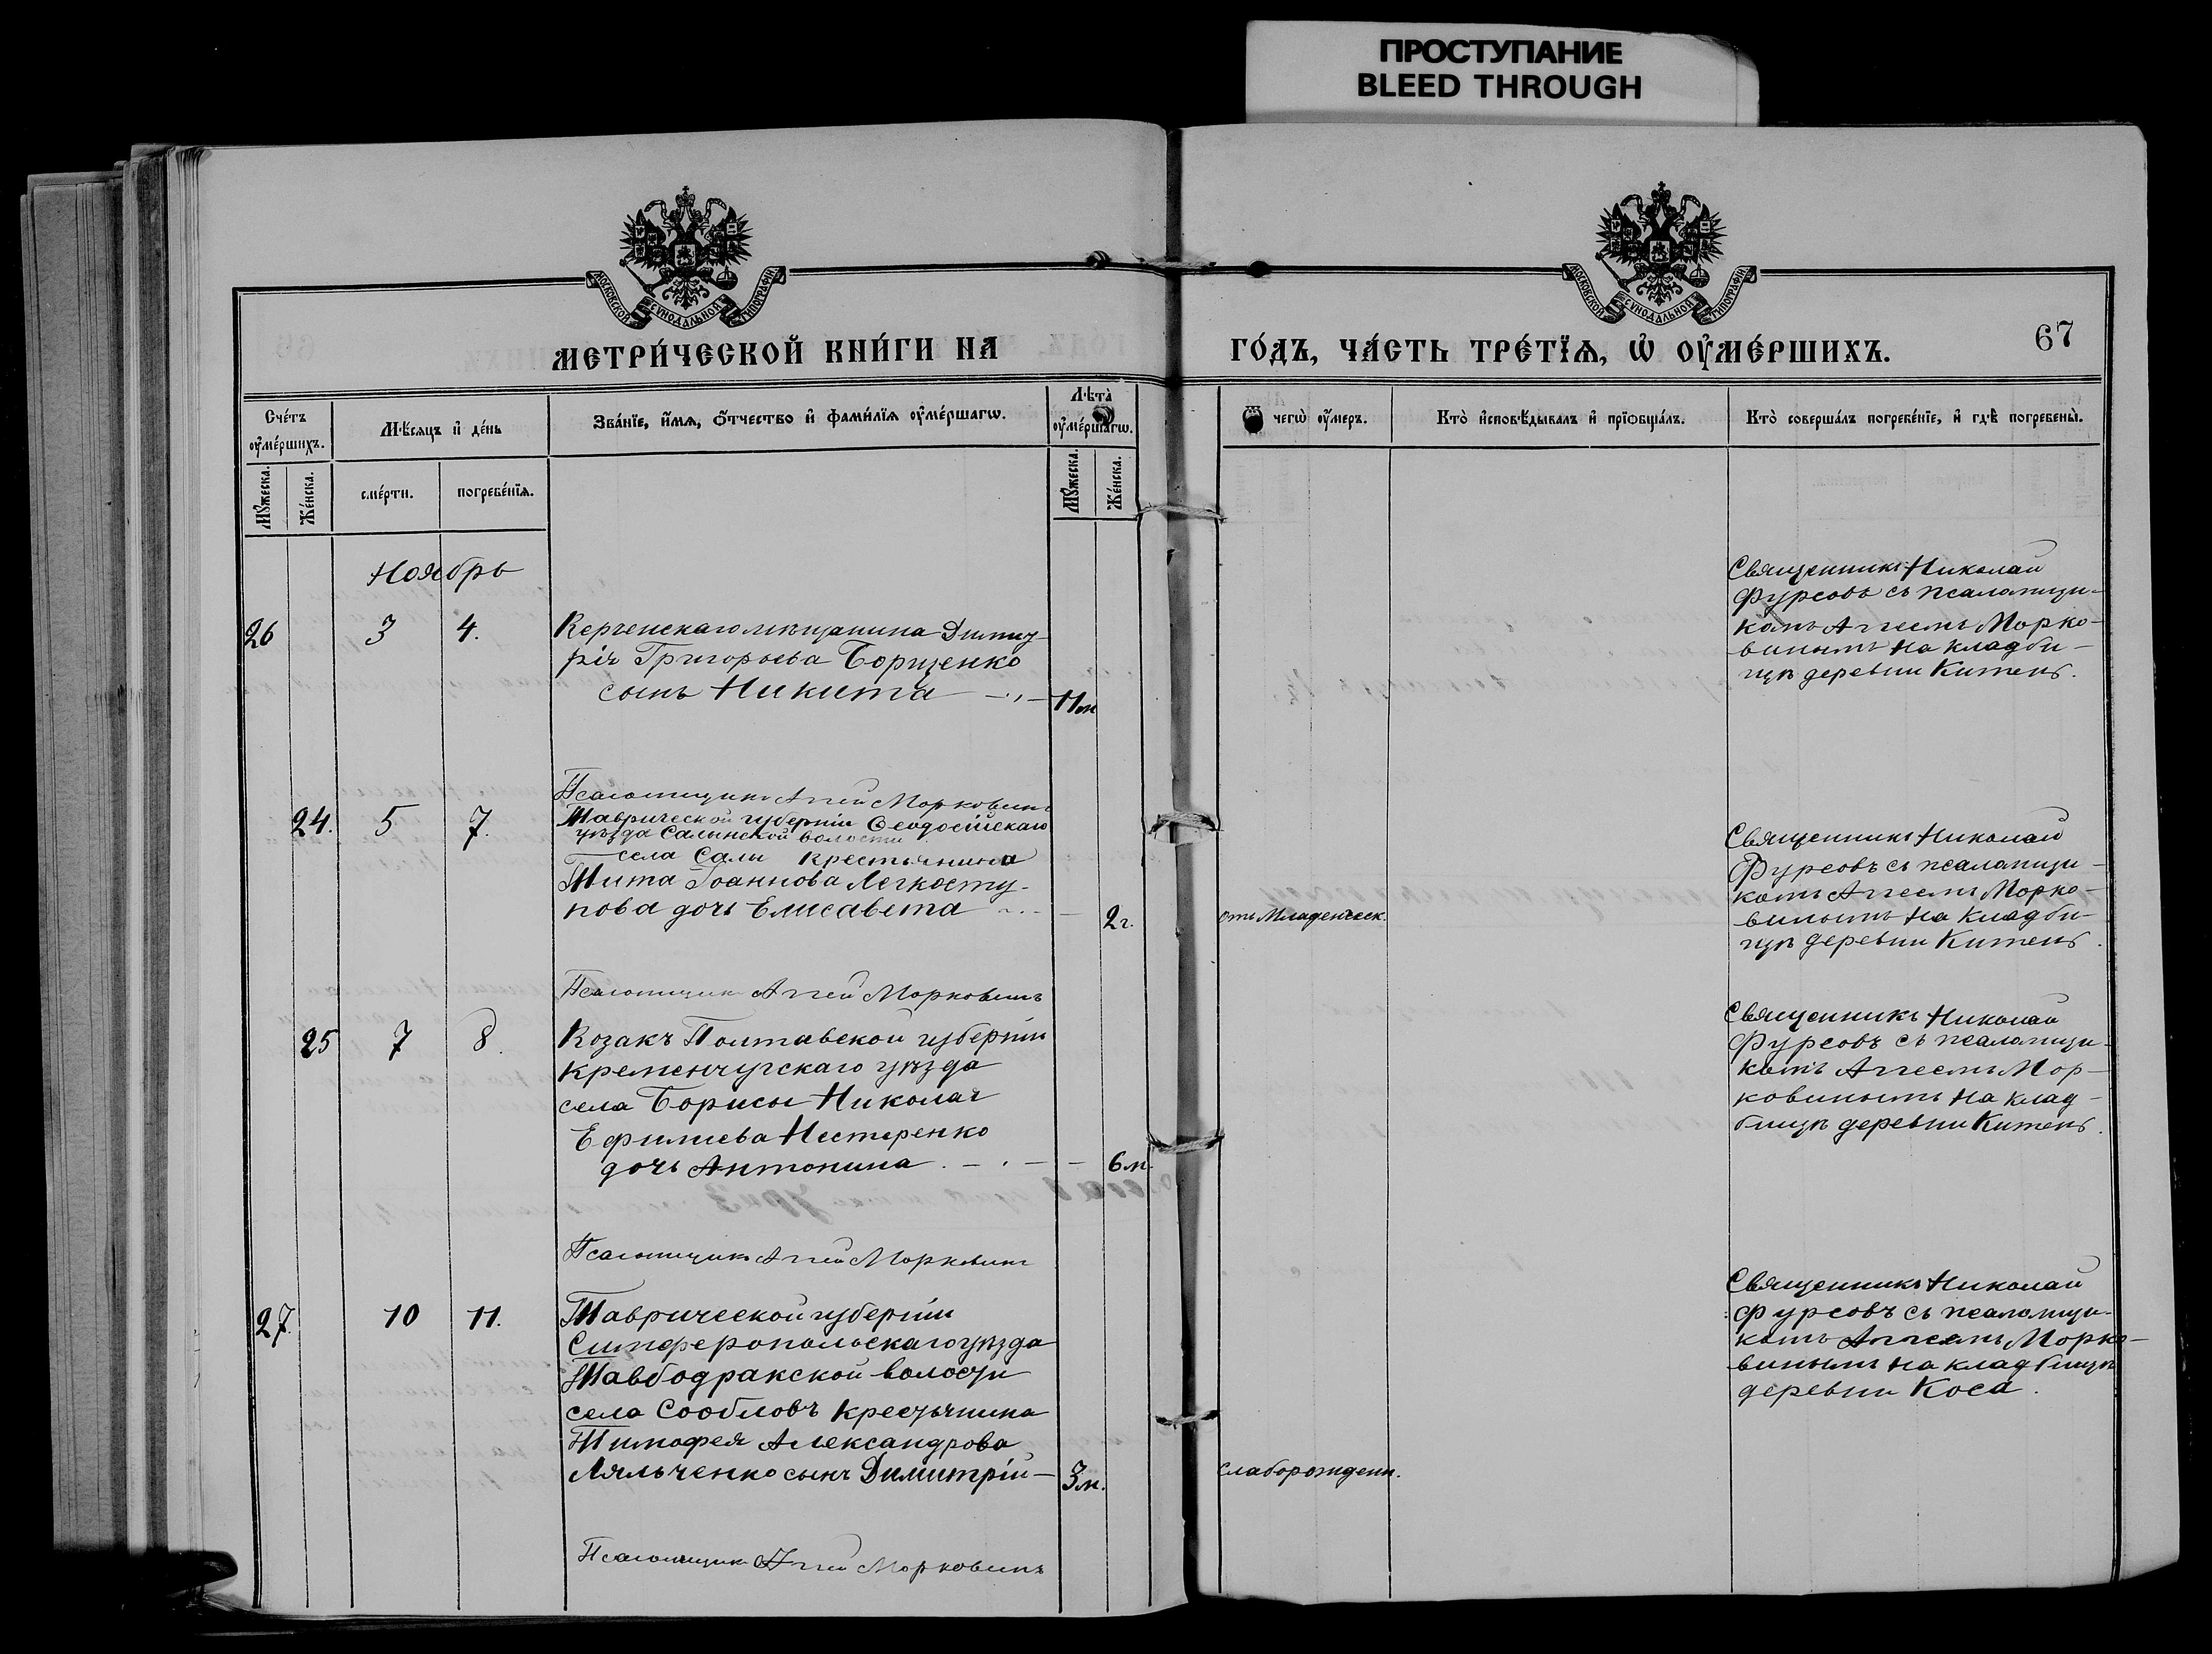 ПРОСТУПАНИЕ
BLEED THROUGH
МОСКОВСКОЙ СѴНОДАЛЬНОЙ ТИПОГРАФІИ
МОСКОВСКОЙ СѴНОДАЛЬНОЙ ТИПОГРАФІИ
МЕТРИ́ЧЕСКОЙ КНИ́ГИ НА ГО́ДЪ, ЧА́СТЬ ТРЕ́ТЇѦ, Ѡ҆ ОУ҆МЕ́РШИХЪ.
67
Сче́тъ оу҆ме́ршихъ.
Мꙋ́жеска.
Же́нска.
Мѣ́сѧцъ и҆ де́нь
сме́рти.
погребе́нїѧ.
Зва́нїе, и҆́мѧ, ѻ҆́тчество и҆ фами́лїѧ оу҆ме́ршагѡ.
Лѣ̀та̀ оу҆ме́ршагѡ.
Мꙋ́жеска.
Же́нска.
Ѿ чегѡ̀ оу҆́меръ.
Кто̀ и҆сповѣ́дывалъ и҆ прїѡбща́лъ.
Кто̀ соверша́лъ погребе́нїе, и҆ гдѣ̀ погребены̀.
Ноябрь
26 3 4.
Керченскаго мѣщанина Димит-
рія Григорьева Борщенко
сынъ Никита
11 м
Священникъ Николай
Фурсовъ съ псаломщи-
комъ Аггеемъ Морко-
винымъ на кладби-
щѣ деревни Китень.
Псаломщикъ Аггей Морковинъ
24. 5 7.
Таврической губерніи Ѳеодосійскаго
уѣзда Салынской волости
села Салы крестьянина
Тита Іоаннова Легкосту-
пова дочь Елисавета
2 г.
отъ Младенческ.
Священникъ Николай
Фурсовъ съ псаломщи-
комъ Аггеемъ Морко-
винымъ на кладби-
щѣ деревни Китень.
Псаломщикъ Аггей Морковинъ
25 7 8.
Козакъ Полтавской губерніи
Кременчугскаго уѣзда
села Борисы Николая
Ефимиева Нестеренко
дочь Антонина
6 м.
Священникъ Николай
Фурсовъ съ псаломщи-
комъ Аггеемъ Мор-
ковинымъ на клад-
бищѣ деревни Китень.
Псаломщикъ Аггей Морковинъ
27. 10 11.
Таврической губерніи
Симферопольскаго уѣзда
Тавбодракской волости
села Сообловъ крестьянина
Тимофея Александрова
Ляльченко сынъ Димитрій
3 м.
слаборожденн.
Священникъ Николай
Фурсовъ съ псаломщи-
комъ Аггеемъ Морко-
винымъ на кладбищѣ
деревни Коса.
Псаломщикъ Аггей Морковинъ